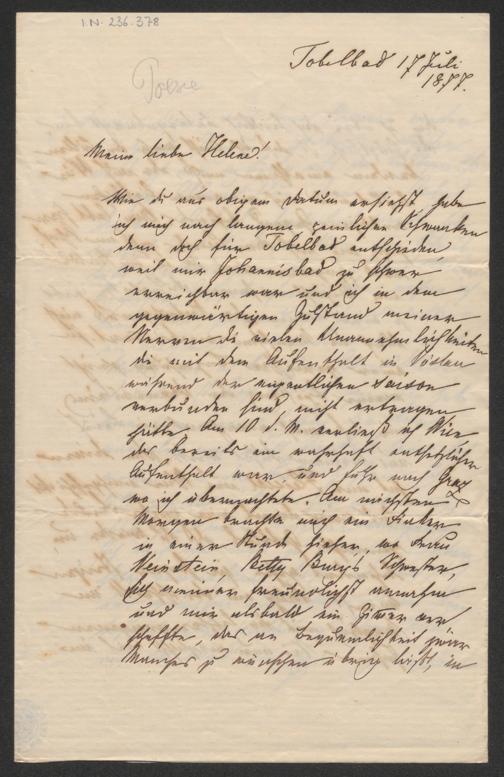 I.N. 236.378
Tobelbad 17 Juli
1877.
Poesie
Meine liebe Helene!
Wie du aus obigem Datum ersiehst habe
ich mich nach langem peinlichen Schwanken
denn doch für Tobelbad entschieden,
weil mir Johannisbad zu schwer
erreichbar war und ich in dem
gegenwärtigen Zustand meiner
Nerven die vielen Unannehmlichkeiten
die mit dem Aufenthalt in Vöslau
während der eigentlichen Saison
verbunden sind, nicht ertragen
hätte. Am 10 d. M. verließ ich Wien
das bereits ein wahrhaft entsetzlicher
Aufenthalt war, und fuhr nach Graz
wo ich übernachtete. Am nächsten
Morgen brachte mich ein Fiaker
in einer Stunde hieher, wo Frau
Weinstein, Betty Schwester,
sich meiner freundlichst annahm
und mir alsbald ein Zimer ver
schaffte, das an Bequemlichkeit zwar
Manches zu wünschen übrig läßt, im